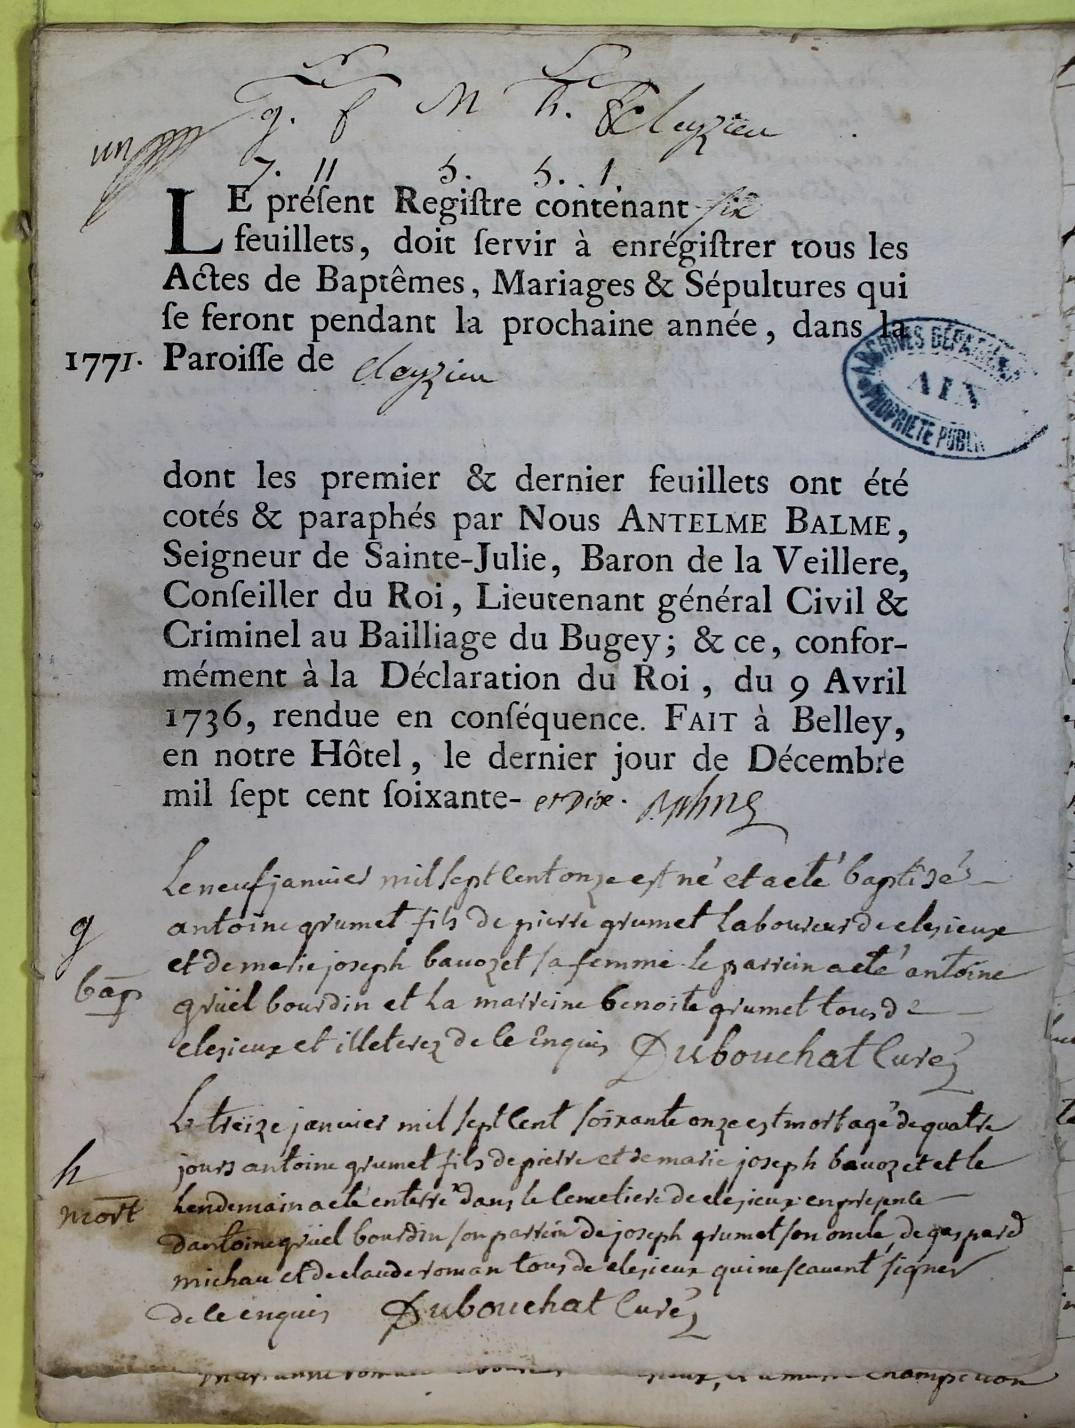 g. f M h. Cleyzieu
un
7. 11 5. 5. 1.
LE préſent Regiſtre contenant six
feuillets, doit ſervir à enrégiſtrer tous les
Actes de Baptêmes, Mariages & Sépultures qui
ſe feront pendant la prochaine année, dans la
1771. Paroiſſe de cleyzieu
ARCHIVES DÉPARTEM
AIN
PROPRIÉTÉ PUBLI
dont les premier & dernier feuillets ont été
cotés & paraphés par Nous ANTELME BALME,
Seigneur de Sainte-Julie, Baron de la Veillere,
Conſeiller du Roi, Lieutenant général Civil &
Criminel au Bailliage du Bugey; & ce, confor-
mément à la Déclaration du Roi, du 9 Avril
1736, rendue en conſéquence. FAIT à Belley,
en notre Hôtel, le dernier jour de Décembre
mil ſept cent ſoixante- et dix.
Le neuf janvier mil sept cent onze est né et a eté baptisé
g antoine grumet fils de pierre grumet laboureur de clesieux
et de marie joseph bavozet sa femme le parrein a eté antoine
bap grüel bourdin et la marreine benoite grumet tous de
clesieux et illeterez de ce enquis Dubouchat Curé
Le treize janvier mil sept cent soixante onze est mort agé de quatre
jours antoine grumet fils de pierre et de marie joseph bavozet et le
h lendemain a eté enterré dans le cemetiere de clesieux en presente
mort d'antoine grüel bourdin son parrein de joseph grumet son oncle, de gaspard
michau et de claude roman tous de clesieux qui ne scavent signer
de ce enquis Dubouchat Curé
marianne roman champeuon